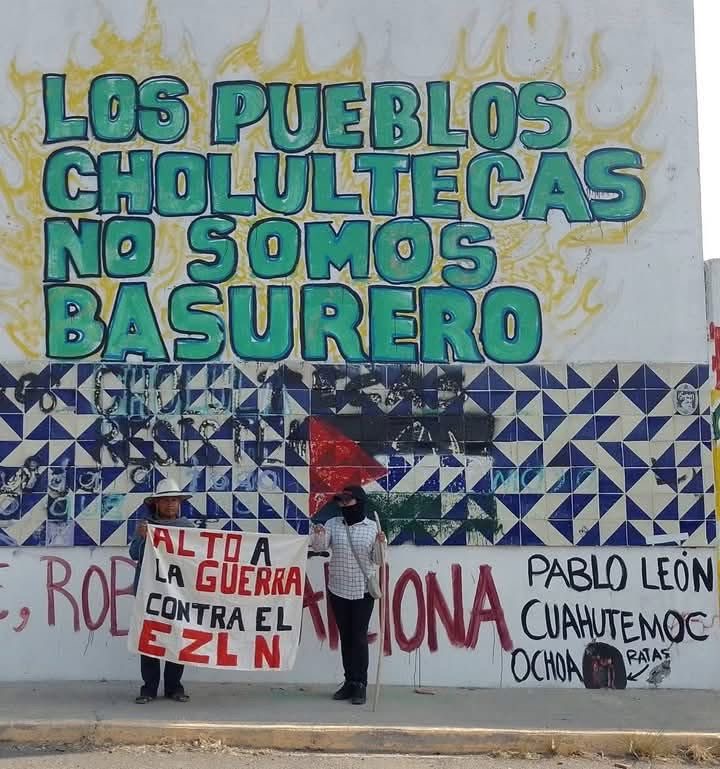 LOS PUEBLOS
CHOLULTECAS
NO SOMOS
BASURERO
CHOLUL
RESISTE
ALTO A
LA GUERRA
CONTRA EL
EZLN
ROB
IONA
PABLO LEÓN
CUAHUTEMOC
OCHOA
RATAS